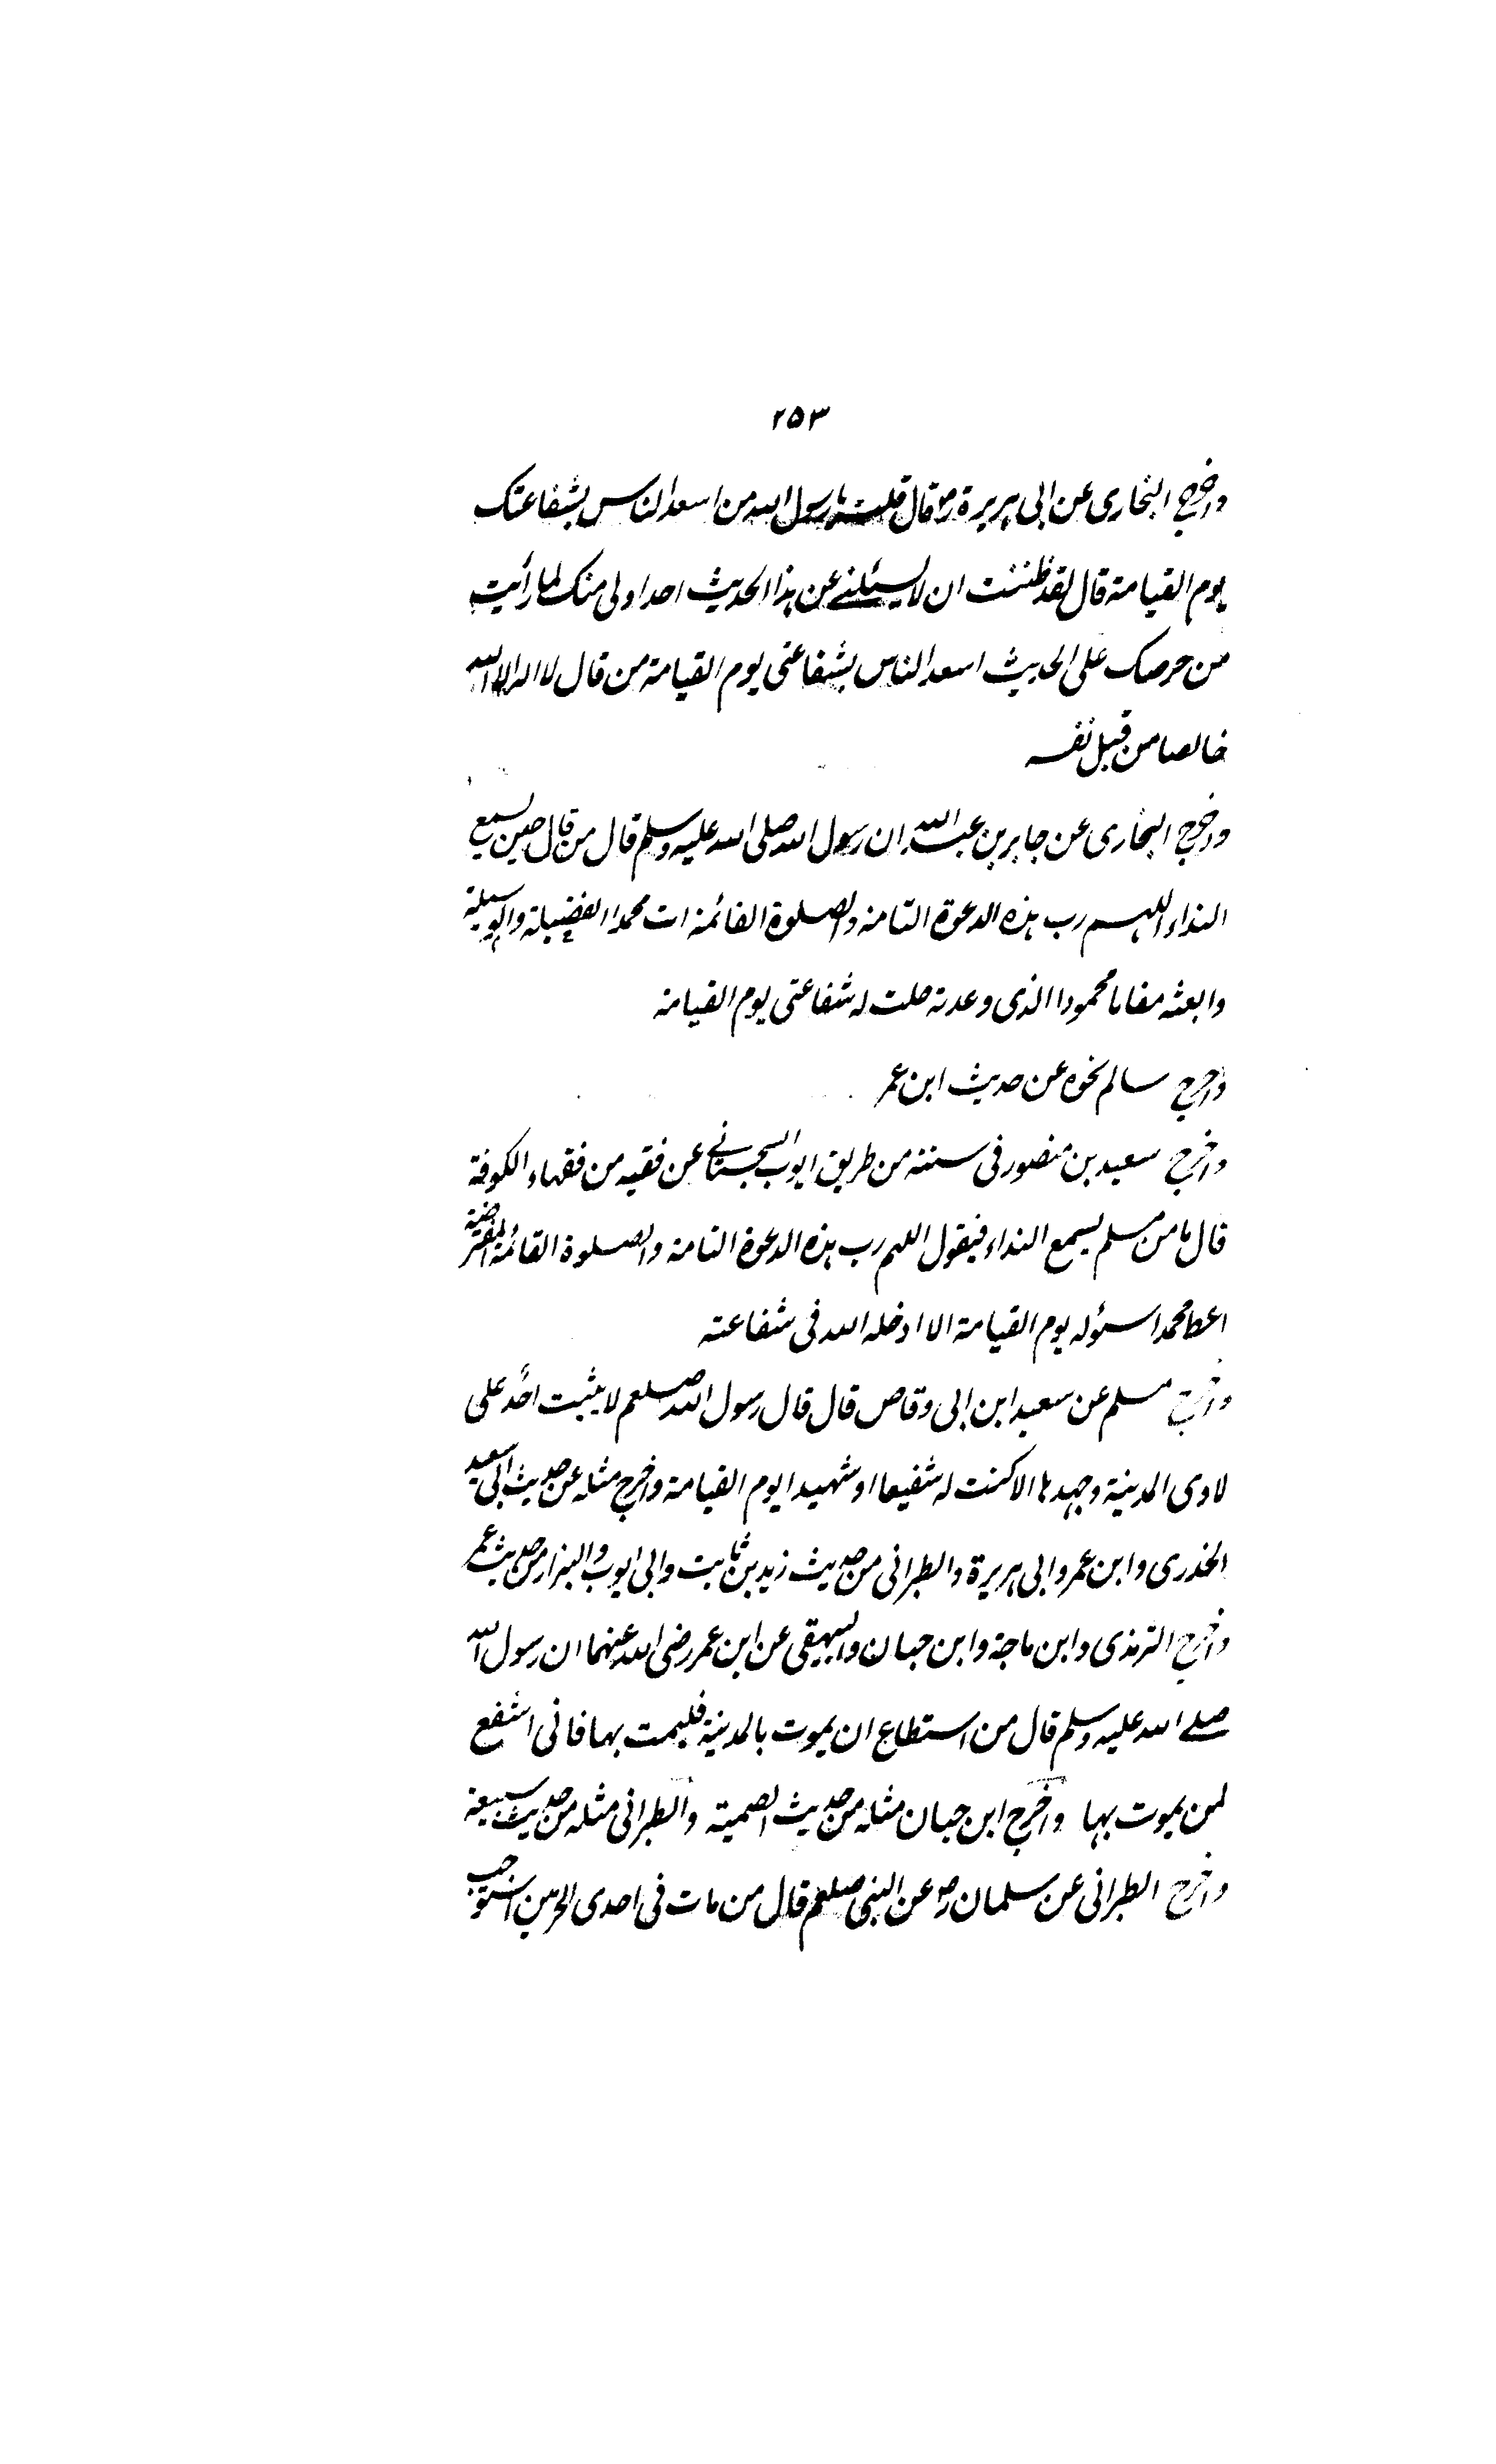 ۲۵۳
واخرج البخاری عن ابی ہریرة رض قال قلت یا رسول الله من اسعد الناس بشفاعتک
یوم القیامة قال لقد ظننت ان لا یسئلنے عن ہذا الحدیث احد اولی منک لما رأیت
من حرصک علی الحدیث اسعد الناس بشفاعتی یوم القیامة من قال لا اله الا الله
خالصا من قبل نفسه
واخرج البخاری عن جابر بن عبد الله ان رسول الله صلی الله علیه وسلم قال من قال حین یسمع
النداء اللہم رب ہذہ الدعوة التامة والصلوة القائمة ات محمدا الفضیلة والوسیلة
وابعثه مقاما محمودا الذی وعدته حلت له شفاعتی یوم القیامة
واخرج سالم نحوہ عن حدیث ابن عمر
واخرج سعید بن منصور فی سننه من طریق ایوب السجستانے عن فقیه من فقہاء الکوفة
قال ما من مسلم یسمع النداء فیقول اللہم رب ہذہ الدعوة التامة والصلوة القائمة المفترضة
اعط محمدا سئوله یوم القیامة الا ادخله الله فی شفاعته
واخرج مسلم عن سعید ابن ابی وقاص قال قال رسول الله صلعم لا یثبت احد علی
لاوی المدینة وجہدہا الا کنت له شفیعا او شہیدا یوم القیامة واخرج مثله عن حدیث ابی سعید
الخدری وابن عمر وابی ہریرة والطبرانی من حدیث زید بن ثابت وابی ایوب والبزار من حدیث عمر
واخرج الترمذی وابن ماجة وابن حبان والبیہقی عن ابن عمر رضی الله عنہما ان رسول الله
صلے الله علیه وسلم قال من استطاع ان یموت بالمدینة فلیمت بہا فانی اشفع
لمن یموت بہا واخرج ابن حبان مثله من حدیث الصمیتة والطبرانی مثله من حدیث سبیعة
واخرج الطبرانی عن سلمان رض عن النبی صلعم قال من مات فی احدی الحرمین استوجب